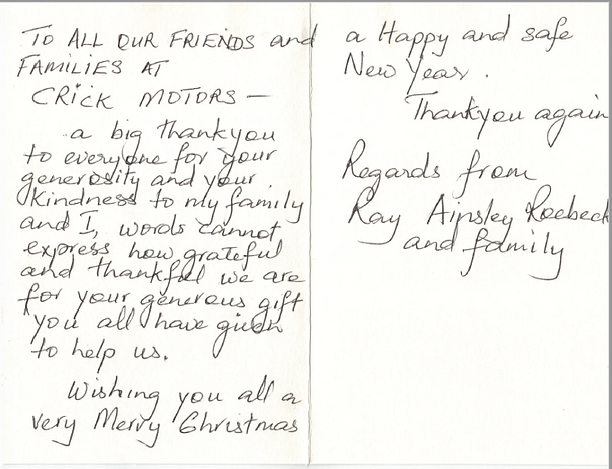 TO ALL OUR FRIENDS and
FAMILIES AT
CRICK MOTORS —
a big thankyou
to everyone for your
generosity and your
kindness to my family
and I, words cannot
express how grateful
and thankful we are
for your generous gift
you all have given
to help us.
Wishing you all a
very Merry Christmas
a Happy and safe
New Year.
Thankyou again
Regards from
Ray Ainsley Roebeck
and family